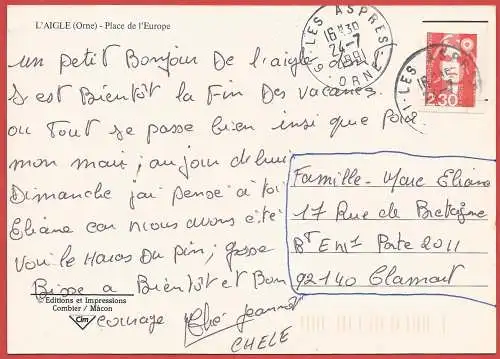 L'AIGLE (Orne) - Place de l'Europe
un petit Bonjour De l'aigle
s est Bientôt la Fin Des vacances
ou Tout se passe bien insi que pour
mon mari; aujourdehui
Dimanche jai pensé a toi
Eliane car nous avons été
voir le Haras du Pin; grosse
Bisse a Bientôt et Bon
courage
Jeannot
CHELE
© Éditions et Impressions
Combier / Mâcon
Cim
LES ASPRES
16H30
24-7
1991
ORNE
2,30
Famille - Marc Eliane
17 Rue de Bretagne
BT Em1 Porte 2011
92140 Clamart